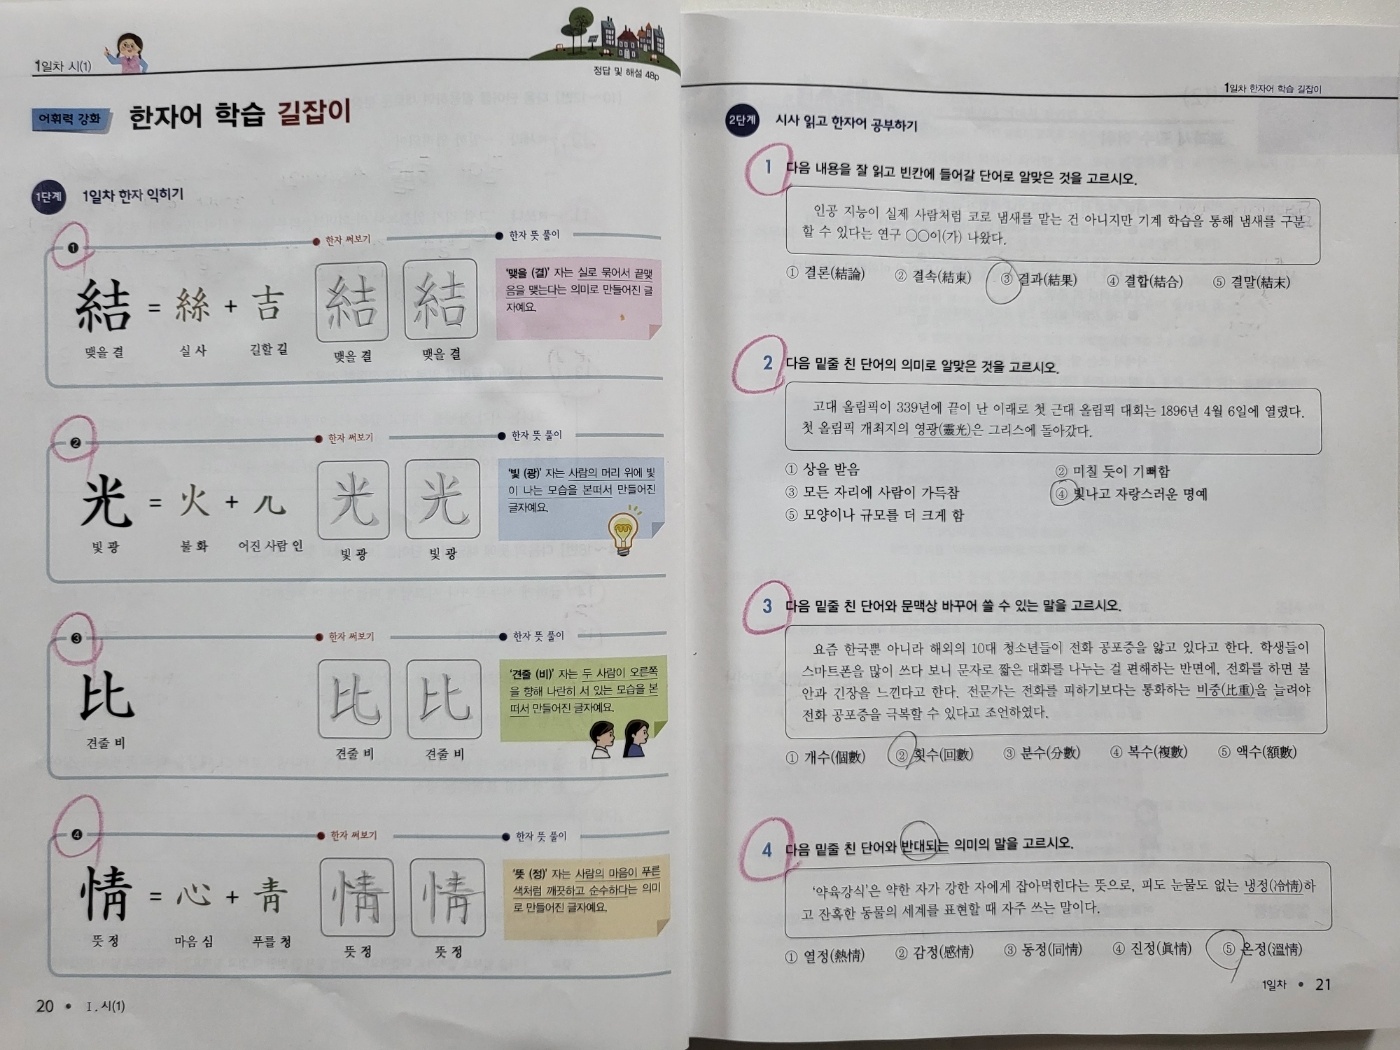 1일차 시(1)
정답 및 해설 48p
어휘력 강화 한자어 학습 길잡이
1단계 1일차 한자 익히기
❶ 한자 써보기 한자 뜻 풀이
結 = 絲 + 吉 結 結
맺을 결 실 사 길할 길 맺을 결 맺을 결
'맺을 (결)' 자는 실로 묶어서 끝맺
음을 맺는다는 의미로 만들어진 글
자예요.
❷ 한자 써보기 한자 뜻 풀이
光 = 火 + 儿 光 光
빛 광 불 화 어진 사람 인 빛 광 빛 광
'빛 (광)' 자는 사람의 머리 위에 빛
이 나는 모습을 본떠서 만들어진
글자예요.
❸ 한자 써보기 한자 뜻 풀이
比 比 比
견줄 비 견줄 비 견줄 비
'견줄 (비)' 자는 두 사람이 오른쪽
을 향해 나란히 서 있는 모습을 본
떠서 만들어진 글자예요.
❹ 한자 써보기 한자 뜻 풀이
情 = 心 + 靑 情 情
뜻 정 마음 심 푸를 청 뜻 정 뜻 정
'뜻 (정)' 자는 사람의 마음이 푸른
색처럼 깨끗하고 순수하다는 의미
로 만들어진 글자예요.
20 • Ⅰ. 시(1)
1일차 한자어 학습 길잡이
2단계 시사 읽고 한자어 공부하기
1 다음 내용을 잘 읽고 빈칸에 들어갈 단어로 알맞은 것을 고르시오.
인공 지능이 실제 사람처럼 코로 냄새를 맡는 건 아니지만 기계 학습을 통해 냄새를 구분
할 수 있다는 연구 ○○이(가) 나왔다.
① 결론(結論) ② 결속(結束) ③ 결과(結果) ④ 결합(結合) ⑤ 결말(結末)
2 다음 밑줄 친 단어의 의미로 알맞은 것을 고르시오.
고대 올림픽이 339년에 끝이 난 이래로 첫 근대 올림픽 대회는 1896년 4월 6일에 열렸다.
첫 올림픽 개최지의 영광(靈光)은 그리스에 돌아갔다.
① 상을 받음 ② 미칠 듯이 기뻐함
③ 모든 자리에 사람이 가득참 ④ 빛나고 자랑스러운 명예
⑤ 모양이나 규모를 더 크게 함
3 다음 밑줄 친 단어와 문맥상 바꾸어 쓸 수 있는 말을 고르시오.
요즘 한국뿐 아니라 해외의 10대 청소년들이 전화 공포증을 앓고 있다고 한다. 학생들이
스마트폰을 많이 쓰다 보니 문자로 짧은 대화를 나누는 걸 편해하는 반면에, 전화를 하면 불
안과 긴장을 느낀다고 한다. 전문가는 전화를 피하기보다는 통화하는 비중(比重)을 늘려야
전화 공포증을 극복할 수 있다고 조언하였다.
① 개수(個數) ② 횟수(回數) ③ 분수(分數) ④ 복수(複數) ⑤ 액수(額數)
4 다음 밑줄 친 단어와 반대되는 의미의 말을 고르시오.
'약육강식'은 약한 자가 강한 자에게 잡아먹힌다는 뜻으로, 피도 눈물도 없는 냉정(冷情)하
고 잔혹한 동물의 세계를 표현할 때 자주 쓰는 말이다.
① 열정(熱情) ② 감정(感情) ③ 동정(同情) ④ 진정(眞情) ⑤ 온정(溫情)
1일차 • 21